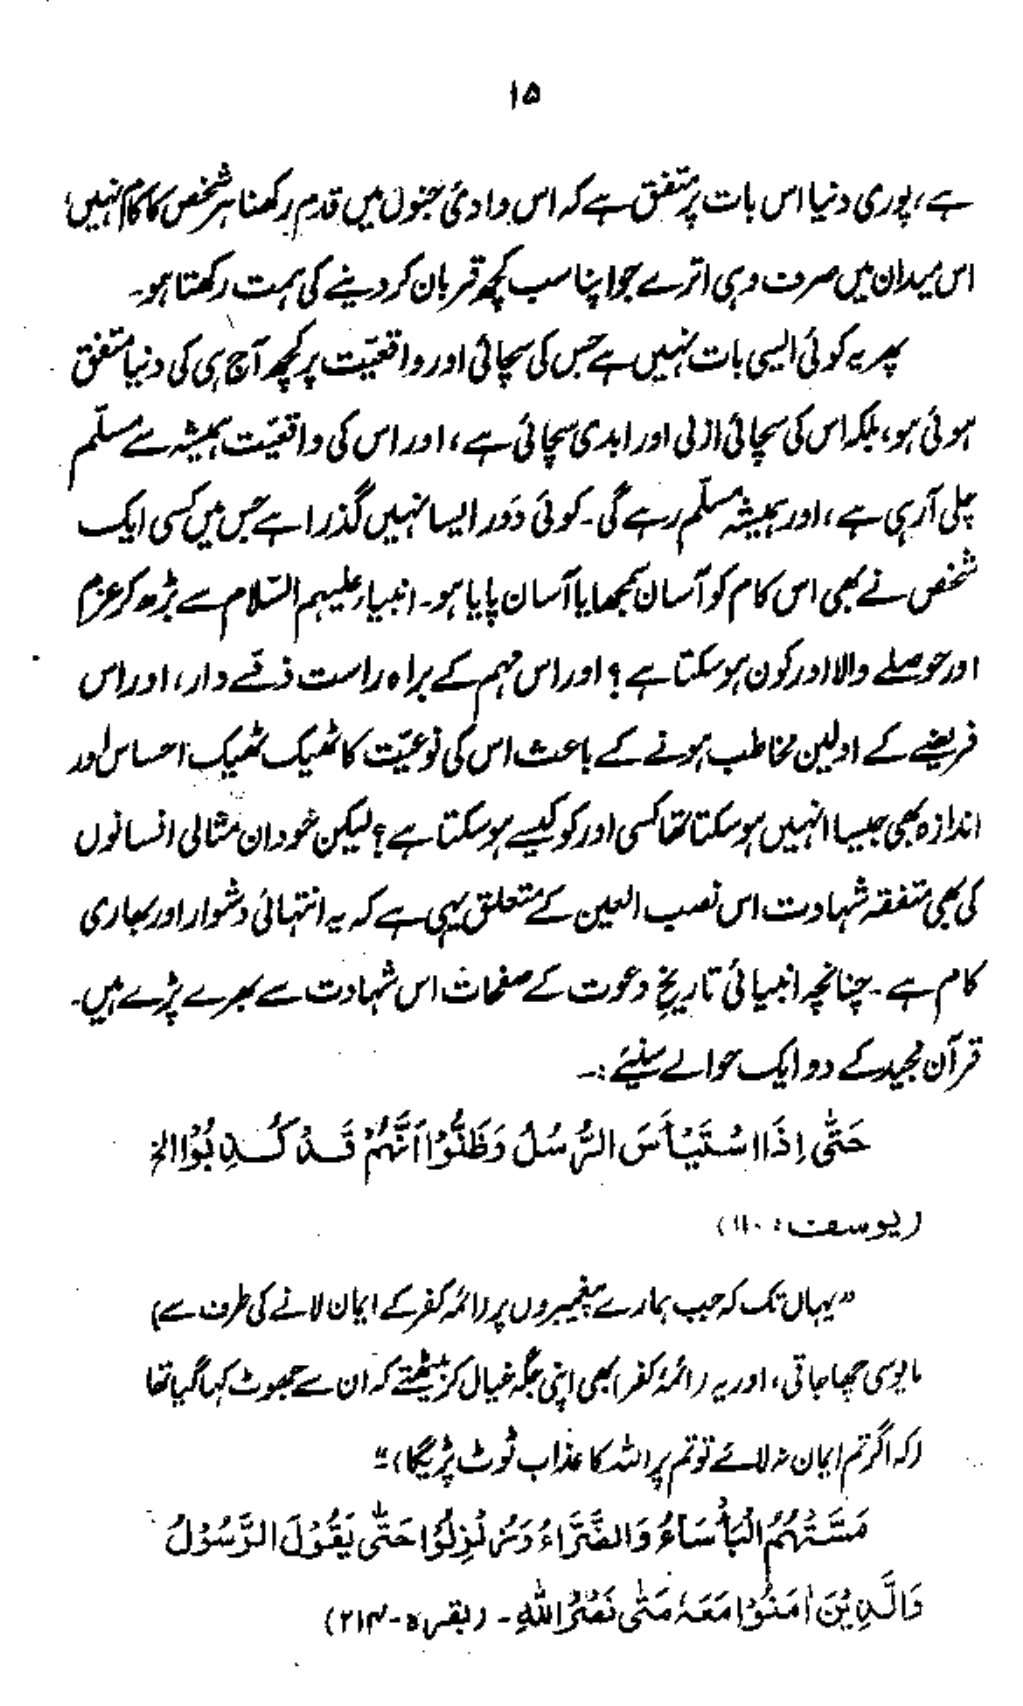 ۱۵
ہے، پوری دنیا اس بات پر متفق ہے کہ اس وادیٔ جنوں میں قدم رکھنا ہر شخص کا کام نہیں،
اس میدان میں صرف وہی اترے جو اپنا سب کچھ قربان کر دینے کی ہمت رکھتا ہو۔
پھر یہ کوئی ایسی بات نہیں ہے جس کی سچائی اور واقعیّت پر کچھ آج ہی کی دنیا متفق
ہوئی ہو، بلکہ اس کی سچائی ازلی اور ابدی سچائی ہے، اور اس کی واقعیّت ہمیشہ سے مسلّم
چلی آرہی ہے، اور ہمیشہ مسلّم رہے گی۔ کوئی دَور ایسا نہیں گذرا ہے جس میں کسی ایک
شخص نے بھی اس کام کو آسان سمجھا یا آسان پایا ہو۔ انبیاء علیہم السّلام سے بڑھ کر عزم
اور حوصلے والا اور کون ہو سکتا ہے؟ اور اس مہم کے براہ راست ذمّے دار، اور اس
فریضے کے اولین مخاطب ہونے کے باعث اس کی نوعیّت کا ٹھیک ٹھیک احساس اور
اندازہ بھی جیسا انہیں ہو سکتا تھا کسی اور کو کیسے ہو سکتا ہے؟ لیکن خود ان مثالی انسانوں
کی بھی متفقہ شہادت اس نصب العین کے متعلق یہی ہے کہ یہ انتہائی دشوار اور بھاری
کام ہے۔ چنانچہ انبیائی تاریخِ دعوت کے صفحات اس شہادت سے بھرے پڑے ہیں۔
قرآن مجید کے دو ایک حوالے سنیئے :۔
حَتّٰی اِذَا اسْتَیْاَسَ الرُّسُلُ وَظَنُّوْا اَنَّهُمْ قَدْ كُذِبُوْا الخ
(یوسف: ۱۱۰)
"یہاں تک کہ جب ہمارے پیغمبروں پر (ائمہ کفر کے ایمان لانے کی طرف سے)
مایوسی چھا جاتی، اور یہ (ائمۂ کفر) بھی اپنی جگہ خیال کر بیٹھتے کہ ان سے جھوٹ کہا گیا تھا
(کہ اگر تم ایمان نہ لائے تو تم پر اللہ کا عذاب ٹوٹ پڑیگا)"
مَسَّتْهُمُ الْبَاْسَآءُ وَالضَّرَّآءُ وَزُلْزِلُوْا حَتّٰی یَقُوْلَ الرَّسُوْلُ
وَالَّذِیْنَ اٰمَنُوْا مَعَهٗ مَتٰی نَصْرُ اللّٰهِ۔ (بقرہ۔۲۱۴)